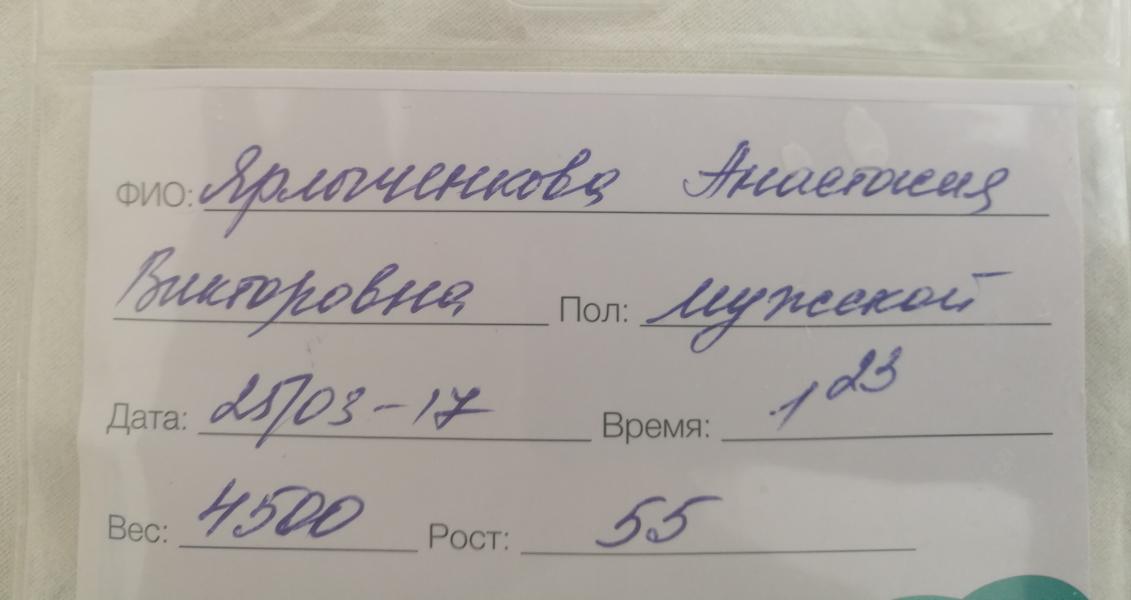 ФИО: Ярлыченкова Анастасия
Викторовна Пол: мужской
Дата: 25/03-17 Время: 1 23
Вес: 4500 Рост: 55